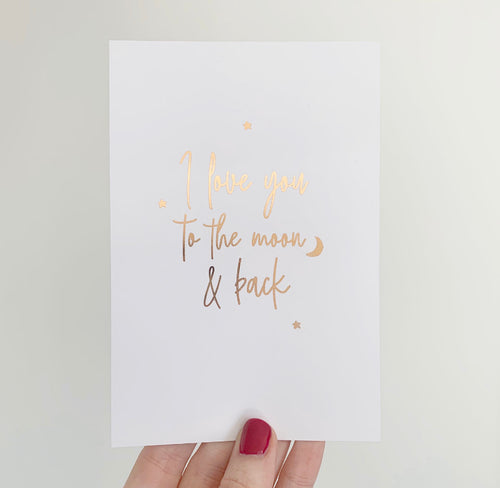 I love you
to the moon
& back